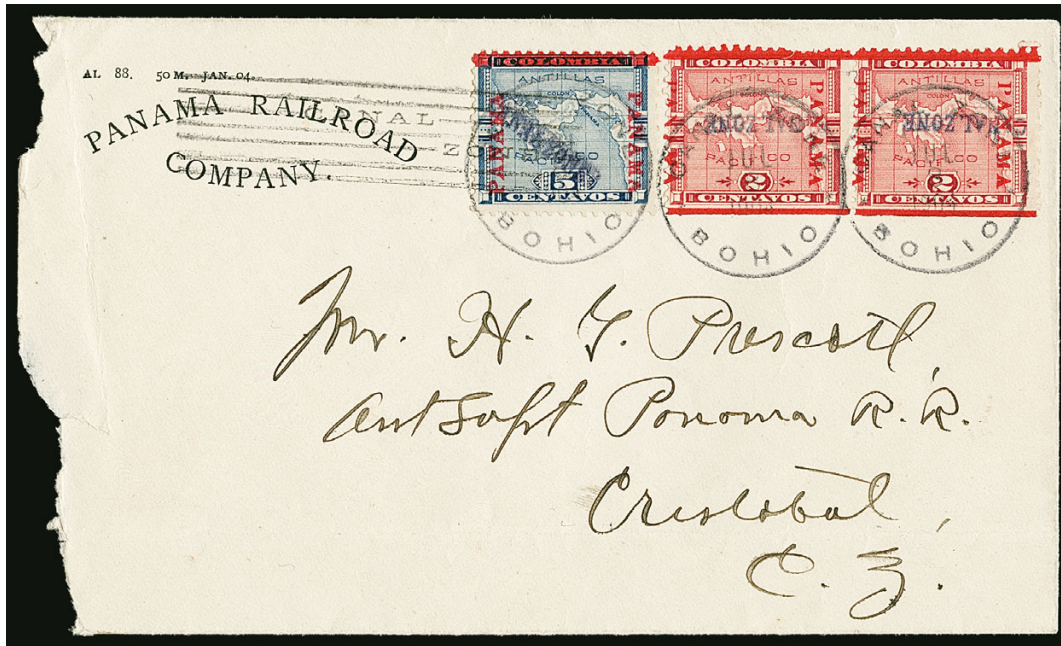 AL 88. 50 M. JAN. 04.
PANAMA RAILROAD
COMPANY.
CANAL
COLOMBIA
ANTILLAS
COLON
PANAMA
PANAMA
PACIFICO
5
CENTAVOS
BOHIO
COLOMBIA
ANTILLAS
PANAMA
PANAMA
CANAL ZONE
PACIFICO
2
CENTAVOS
BOHIO
COLOMBIA
ANTILLAS
PANAMA
PANAMA
CANAL ZONE
PACIFICO
2
CENTAVOS
BOHIO
Mr. H. G. Prescott,
Ant Supt Panama R. R.
Cristobal,
C. Z.